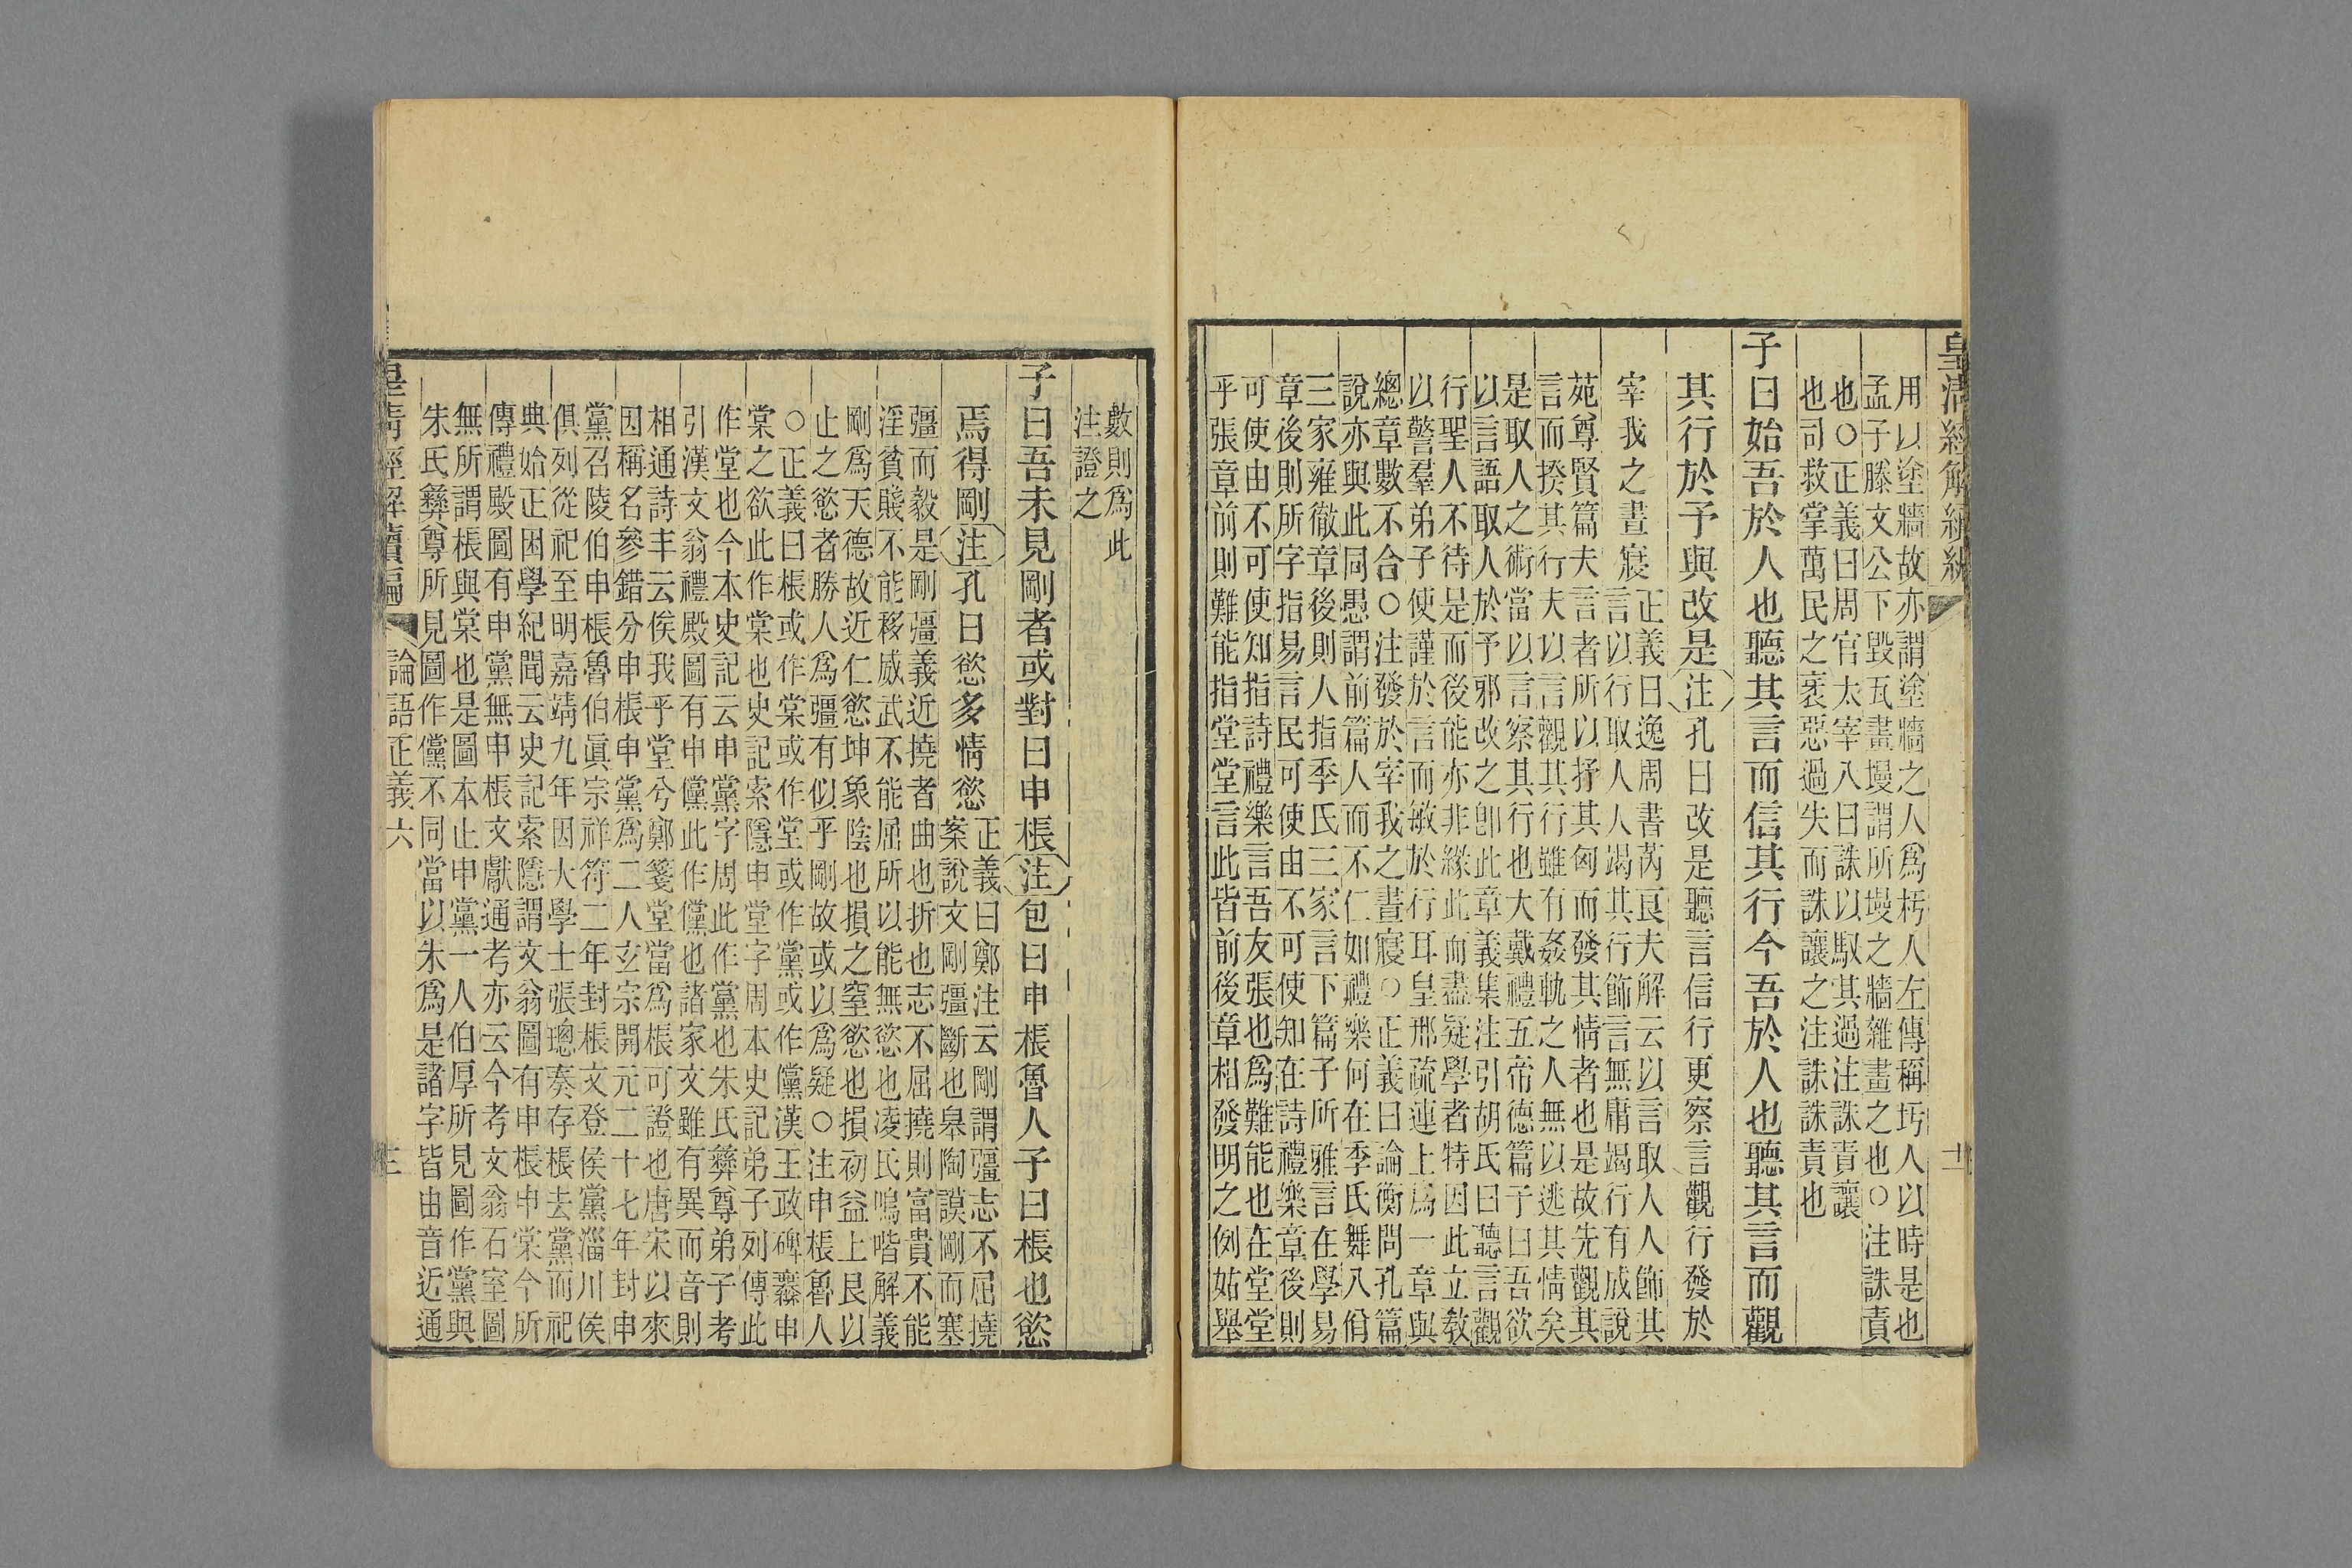 皇清經解續編
十二
用以塗牆故亦謂塗牆之人爲杇人左傳稱圬人以時是也
孟子滕文公下毀瓦畫墁謂所墁之牆雜畫之也○注誅責
也○正義曰周官太宰八曰誅以馭其過注誅責讓
也司救掌萬民之衺惡過失而誅讓之注誅誅責也
子曰始吾於人也聽其言而信其行今吾於人也聽其言而觀
其行於予與改是注孔曰改是聽言信行更察言觀行發於
宰我之晝寢
正義曰逸周書芮良夫解云以言取人人飾其
言以行取人人竭其行飾言無庸竭行有成說
苑尊賢篇夫言者所以抒其匈而發其情者也是故先觀其
言而揆其行夫以言觀其行雖有姦軌之人無以逃其情矣
是取人之術當以言察其行也大戴禮五帝德篇子曰吾欲
以言語取人於予邪改之卽此章義集注引胡氏曰聽言觀
行聖人不待是而後能亦非緣此而盡疑學者特因此立教
以警羣弟子使謹於言而敏於行耳皇邢疏連上爲一章與
總章數不合○注發於宰我之晝寢○正義曰論衡問孔篇
說亦與此同愚謂前篇人而不仁如禮樂何在季氏舞八佾
三家雍徹章後則人指季氏三家言下篇子所雅言在學易
章後則所字指易言民可使由不可使知在詩禮樂章後則
可使由不可使知指詩禮樂言吾友張也爲難能也在堂堂
乎張章前則難能指堂堂言此皆前後章相發明之例姑舉
數則爲此
注證之
子曰吾未見剛者或對曰申棖注包曰申棖魯人子曰棖也慾
焉得剛注孔曰慾多情慾
正義曰鄭注云剛謂彊志不屈撓
案說文剛彊斷也皋陶謨剛而塞
彊而毅是剛彊義近撓者曲也折也志不屈撓則富貴不能
淫貧賤不能移威武不能屈所以能無慾也凌氏鳴喈解義
剛爲天德故近仁慾坤象陰也損之窒慾也損初益上艮以
止之慾者勝人爲彊有似乎剛故或以爲疑○注申棖魯人
○正義曰棖或作棠或作堂或作黨或作儻漢王政碑橆申
棠之欲此作棠也史記索隱申堂字周本史記弟子列傳此
作堂也今本史記云申黨字周此作黨也朱氏彝尊弟子考
引漢文翁禮殿圖有申儻此作儻也諸家文雖有異而音則
相通詩丰云俟我乎堂兮鄭箋堂當爲棖可證也唐宋以來
因稱名參錯分申棖申黨爲二人玄宗開元二十七年封申
黨召陵伯申棖魯伯眞宗祥符二年封棖文登侯黨淄川侯
俱列從祀至明嘉靖九年因大學士張璁奏存棖去黨而祀
典始正困學紀聞云史記索隱謂文翁圖有申棖申棠今所
傳禮殿圖有申黨無申棖文獻通考亦云今考文翁石室圖
無所謂棖與棠也是圖本止申黨一人伯厚所見圖作黨與
朱氏彝尊所見圖作儻不同當以朱爲是諸字皆由音近通
皇清經解續編
論語正義六
三